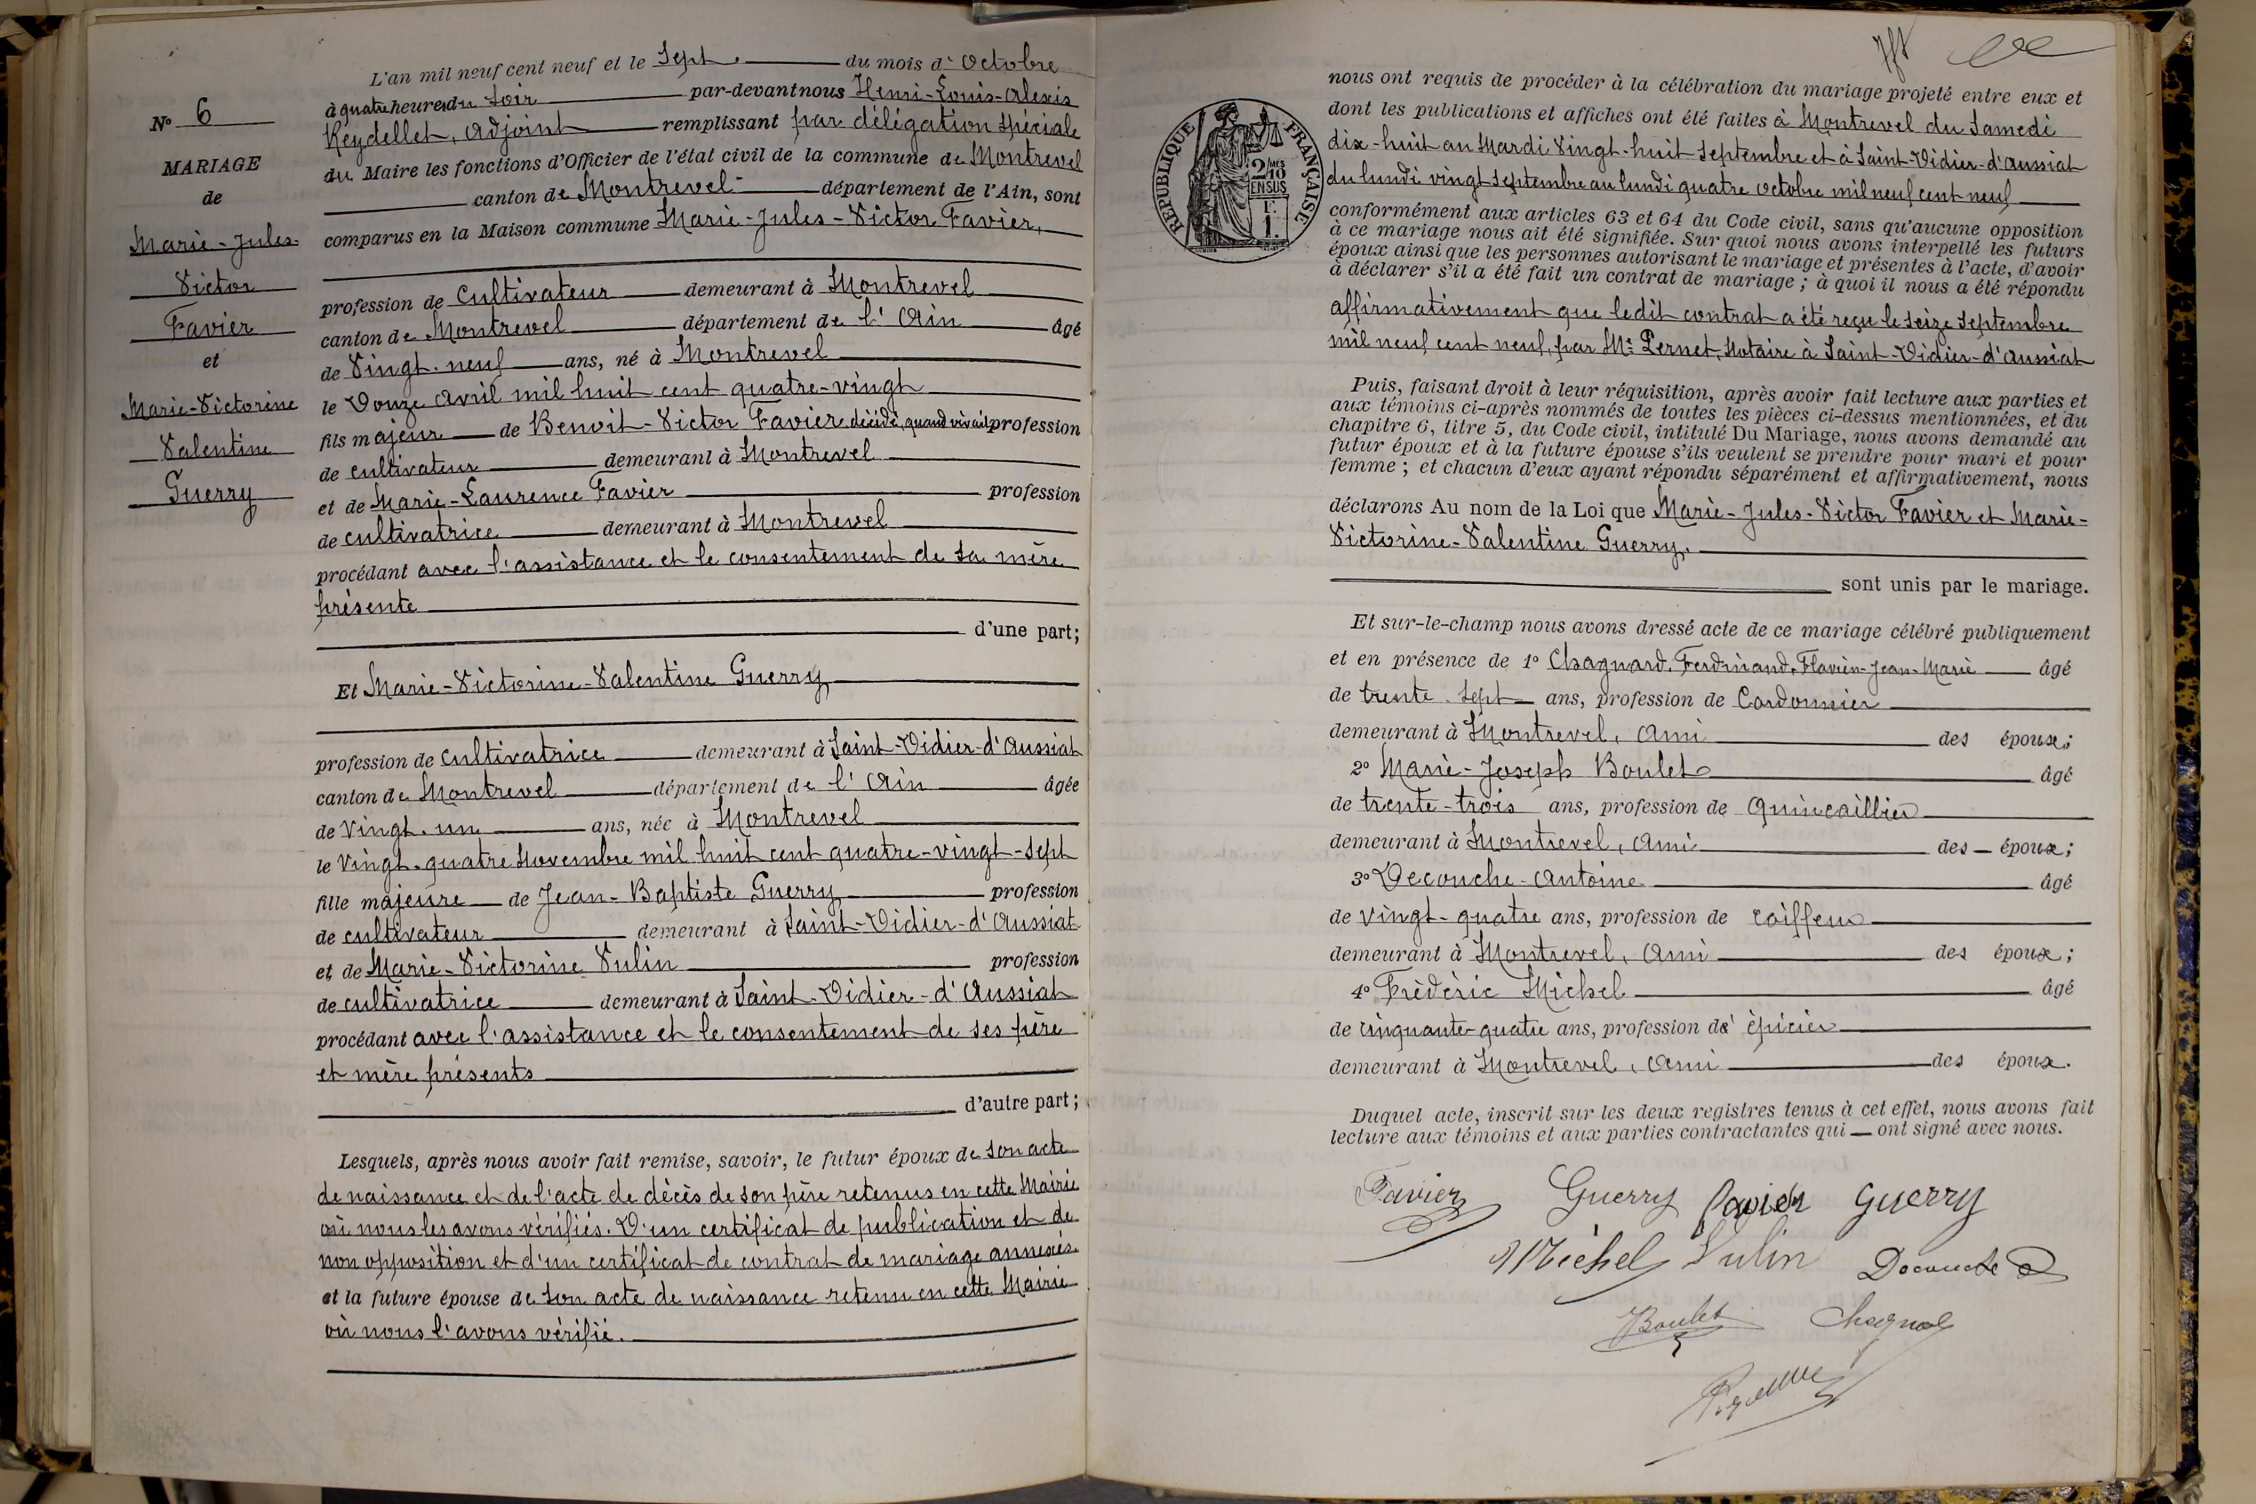 N° 6
MARIAGE
de
Marie-Jules-
Victor
Favier
et
Marie-Victorine
Valentine
Guerry
L'an mil neuf cent neuf et le Sept du mois d'Octobre
à quatre heures du soir par-devant nous Henri-Louis-Alexis
Reydellet, adjoint remplissant par délégation spéciale
du Maire les fonctions d'Officier de l'état civil de la commune de Montrevel
canton de Montrevel département de l'Ain, sont
comparus en la Maison commune Marie-Jules-Victor Favier,
profession de cultivateur demeurant à Montrevel
canton de Montrevel département de l'Ain âgé
de Vingt-neuf ans, né à Montrevel
le Douze avril mil huit cent quatre-vingt
fils majeur de Benoit-Victor Favier décédé, quand vivait profession
de cultivateur demeurant à Montrevel
et de Marie-Laurence Favier profession
de cultivatrice demeurant à Montrevel
procédant avec l'assistance et le consentement de sa mère
présente
d'une part;
Et Marie-Victorine-Valentine Guerry
profession de cultivatrice demeurant à Saint-Didier-d'Aussiat
canton de Montrevel département de l'Ain âgée
de Vingt-un ans, née à Montrevel
le Vingt-quatre Novembre mil huit cent quatre-vingt-sept
fille majeure de Jean-Baptiste Guerry profession
de cultivateur demeurant à Saint-Didier-d'Aussiat
et de Marie-Victorine Vulin profession
de cultivatrice demeurant à Saint-Didier-d'Aussiat
procédant avec l'assistance et le consentement de ses père
et mère présents
d'autre part;
Lesquels, après nous avoir fait remise, savoir, le futur époux de son acte
de naissance et de l'acte de décès de son père retenus en cette Mairie
où nous les avons vérifiés. D'un certificat de publication et de
non opposition et d'un certificat de contrat de mariage annexés.
et la future épouse de son acte de naissance retenu en cette Mairie
où nous l'avons vérifié.
RÉPUBLIQUE FRANÇAISE
2/10 MES
EN SUS
1F.
1.
nous ont requis de procéder à la célébration du mariage projeté entre eux et
dont les publications et affiches ont été faites à Montrevel du Samedi
dix-huit au Mardi Vingt-huit Septembre et à Saint-Didier-d'Aussiat
du lundi vingt Septembre au lundi quatre octobre mil neuf cent neuf
conformément aux articles 63 et 64 du Code civil, sans qu'aucune opposition
à ce mariage nous ait été signifiée. Sur quoi nous avons interpellé les futurs
époux ainsi que les personnes autorisant le mariage et présentes à l'acte, d'avoir
à déclarer s'il a été fait un contrat de mariage ; à quoi il nous a été répondu
affirmativement que ledit contrat a été reçu le seize Septembre
mil neuf cent neuf, par Me Pernet, Notaire à Saint-Didier-d'Aussiat
Puis, faisant droit à leur réquisition, après avoir fait lecture aux parties et
aux témoins ci-après nommés de toutes les pièces ci-dessus mentionnées, et du
chapitre 6, titre 5, du Code civil, intitulé Du Mariage, nous avons demandé au
futur époux et à la future épouse s'ils veulent se prendre pour mari et pour
femme ; et chacun d'eux ayant répondu séparément et affirmativement, nous
déclarons Au nom de la Loi que Marie-Jules-Victor Favier et Marie-
Victorine-Valentine Guerry.
sont unis par le mariage.
Et sur-le-champ nous avons dressé acte de ce mariage célébré publiquement
et en présence de 1° Chagnard, Ferdinand, Flavien-Jean-Marie âgé
de trente-sept ans, profession de Cordonnier
demeurant à Montrevel, Ami des époux;
2° Marie-Joseph Boulet âgé
de trente-trois ans, profession de quincaillier
demeurant à Montrevel, Ami des époux;
3° Decouche-Antoine âgé
de vingt-quatre ans, profession de coiffeur
demeurant à Montrevel, Ami des époux;
4° Frédéric Michel âgé
de cinquante-quatre ans, profession d'épicier
demeurant à Montrevel, Ami des époux.
Duquel acte, inscrit sur les deux registres tenus à cet effet, nous avons fait
lecture aux témoins et aux parties contractantes qui ont signé avec nous.
Favier Guerry Favier Guerry
Michel Vulin Decouche
Boulet Chagnard
Reydellet